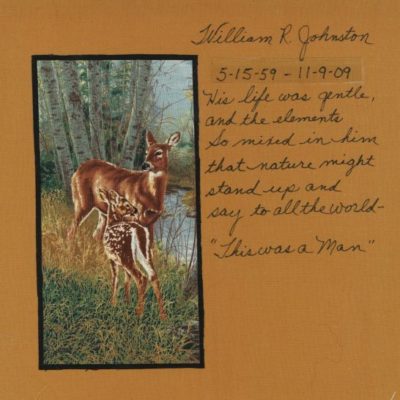 William R. Johnston
5-15-59 - 11-9-09
His life was gentle,
and the elements
So mixed in him
that nature might
stand up and
say to all the world-
"This was a Man"